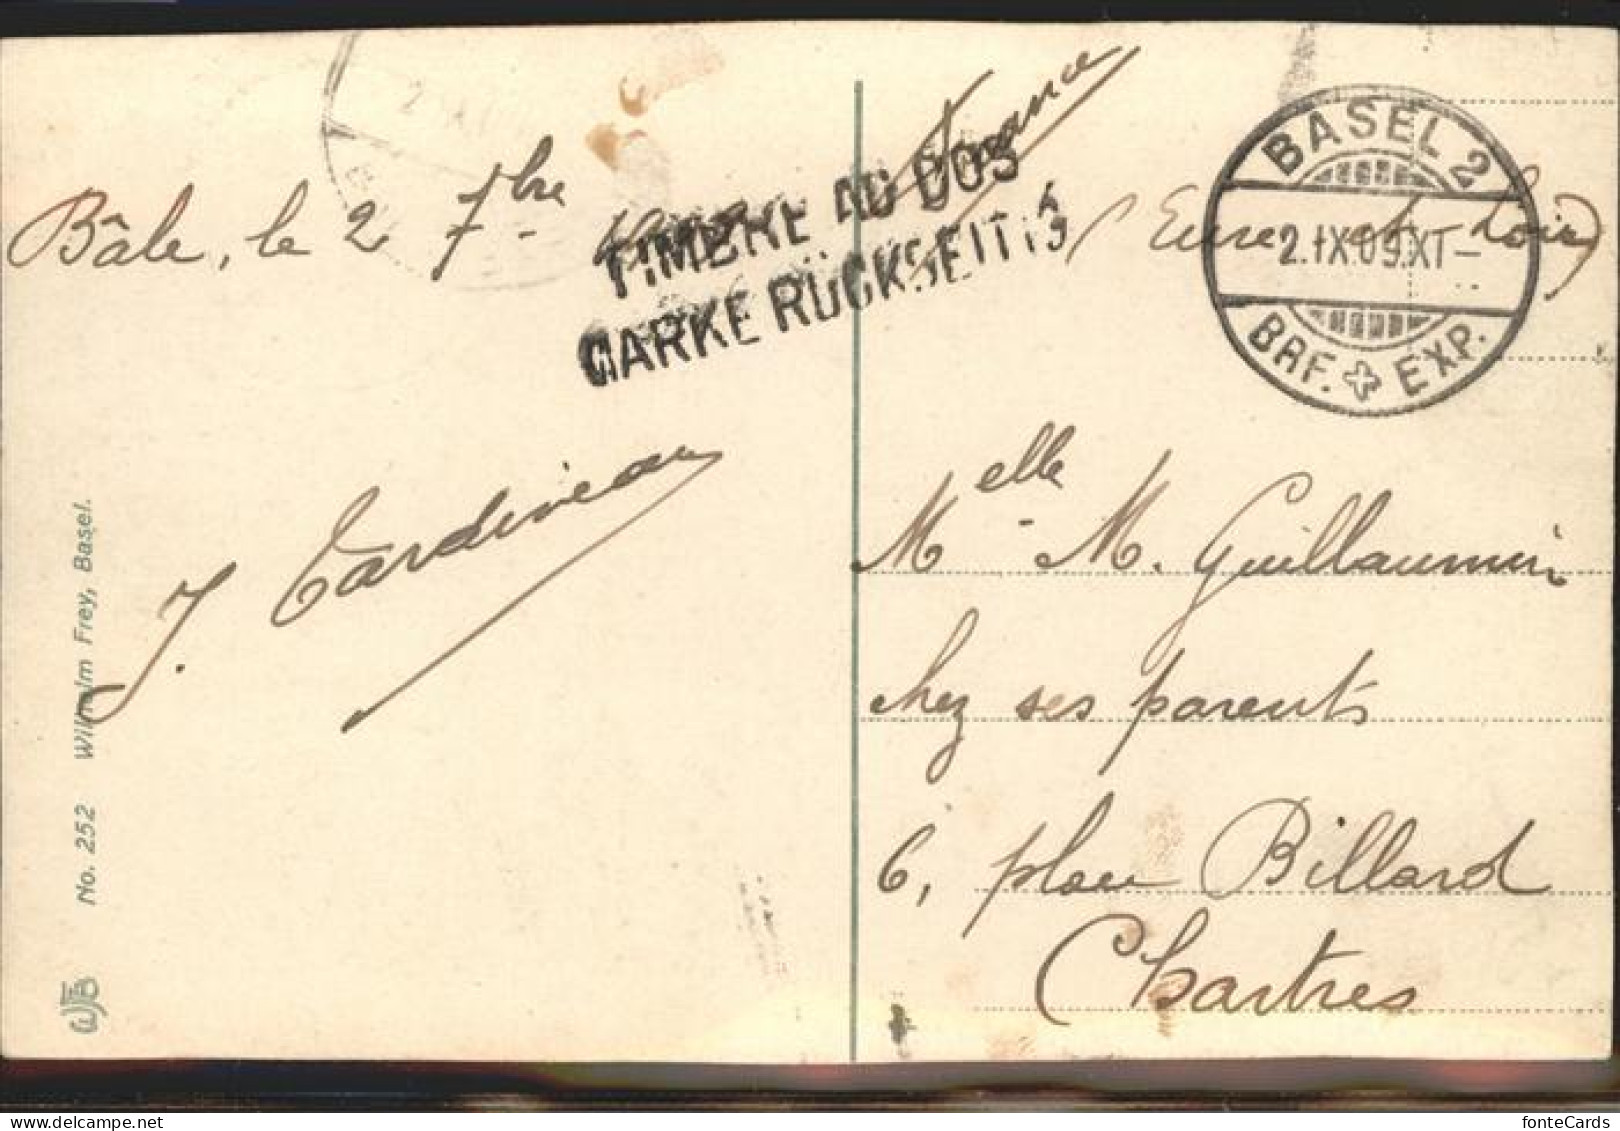 Bâle, le 2 7bre
TIMBRE AU DOS
MARKE RÜCKSEITIG
J. Tardiveau
No. 252 Wilhelm Frey, Basel.
WFB
France
(Eure et Loir)
BASEL 2
2.IX.09.XI–
BRF. EXP.
Melle M. Guillaumin
chez ses parents
6, place Billard
Chartres
fonteCards